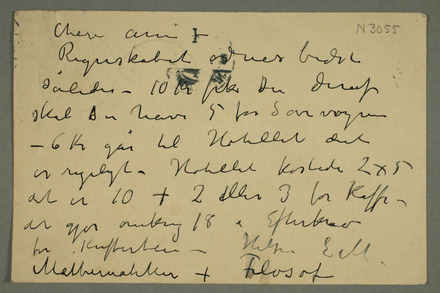 N 3055
Chere ami +
Regnskabet ordnes bedst
således – 10 Kr fik Du deraf
skal Du have 5 for Sovevognen
– 6 Kr går til Hotellet det
er rigeligt – Hotellet kostede 2 x 5
det er 10 + 2 eller 3 for Kaffe –
det gjør omkring 18 a Efterkrav
for Kufferten – Hilsen E.M.
Mathematikker + Filosof